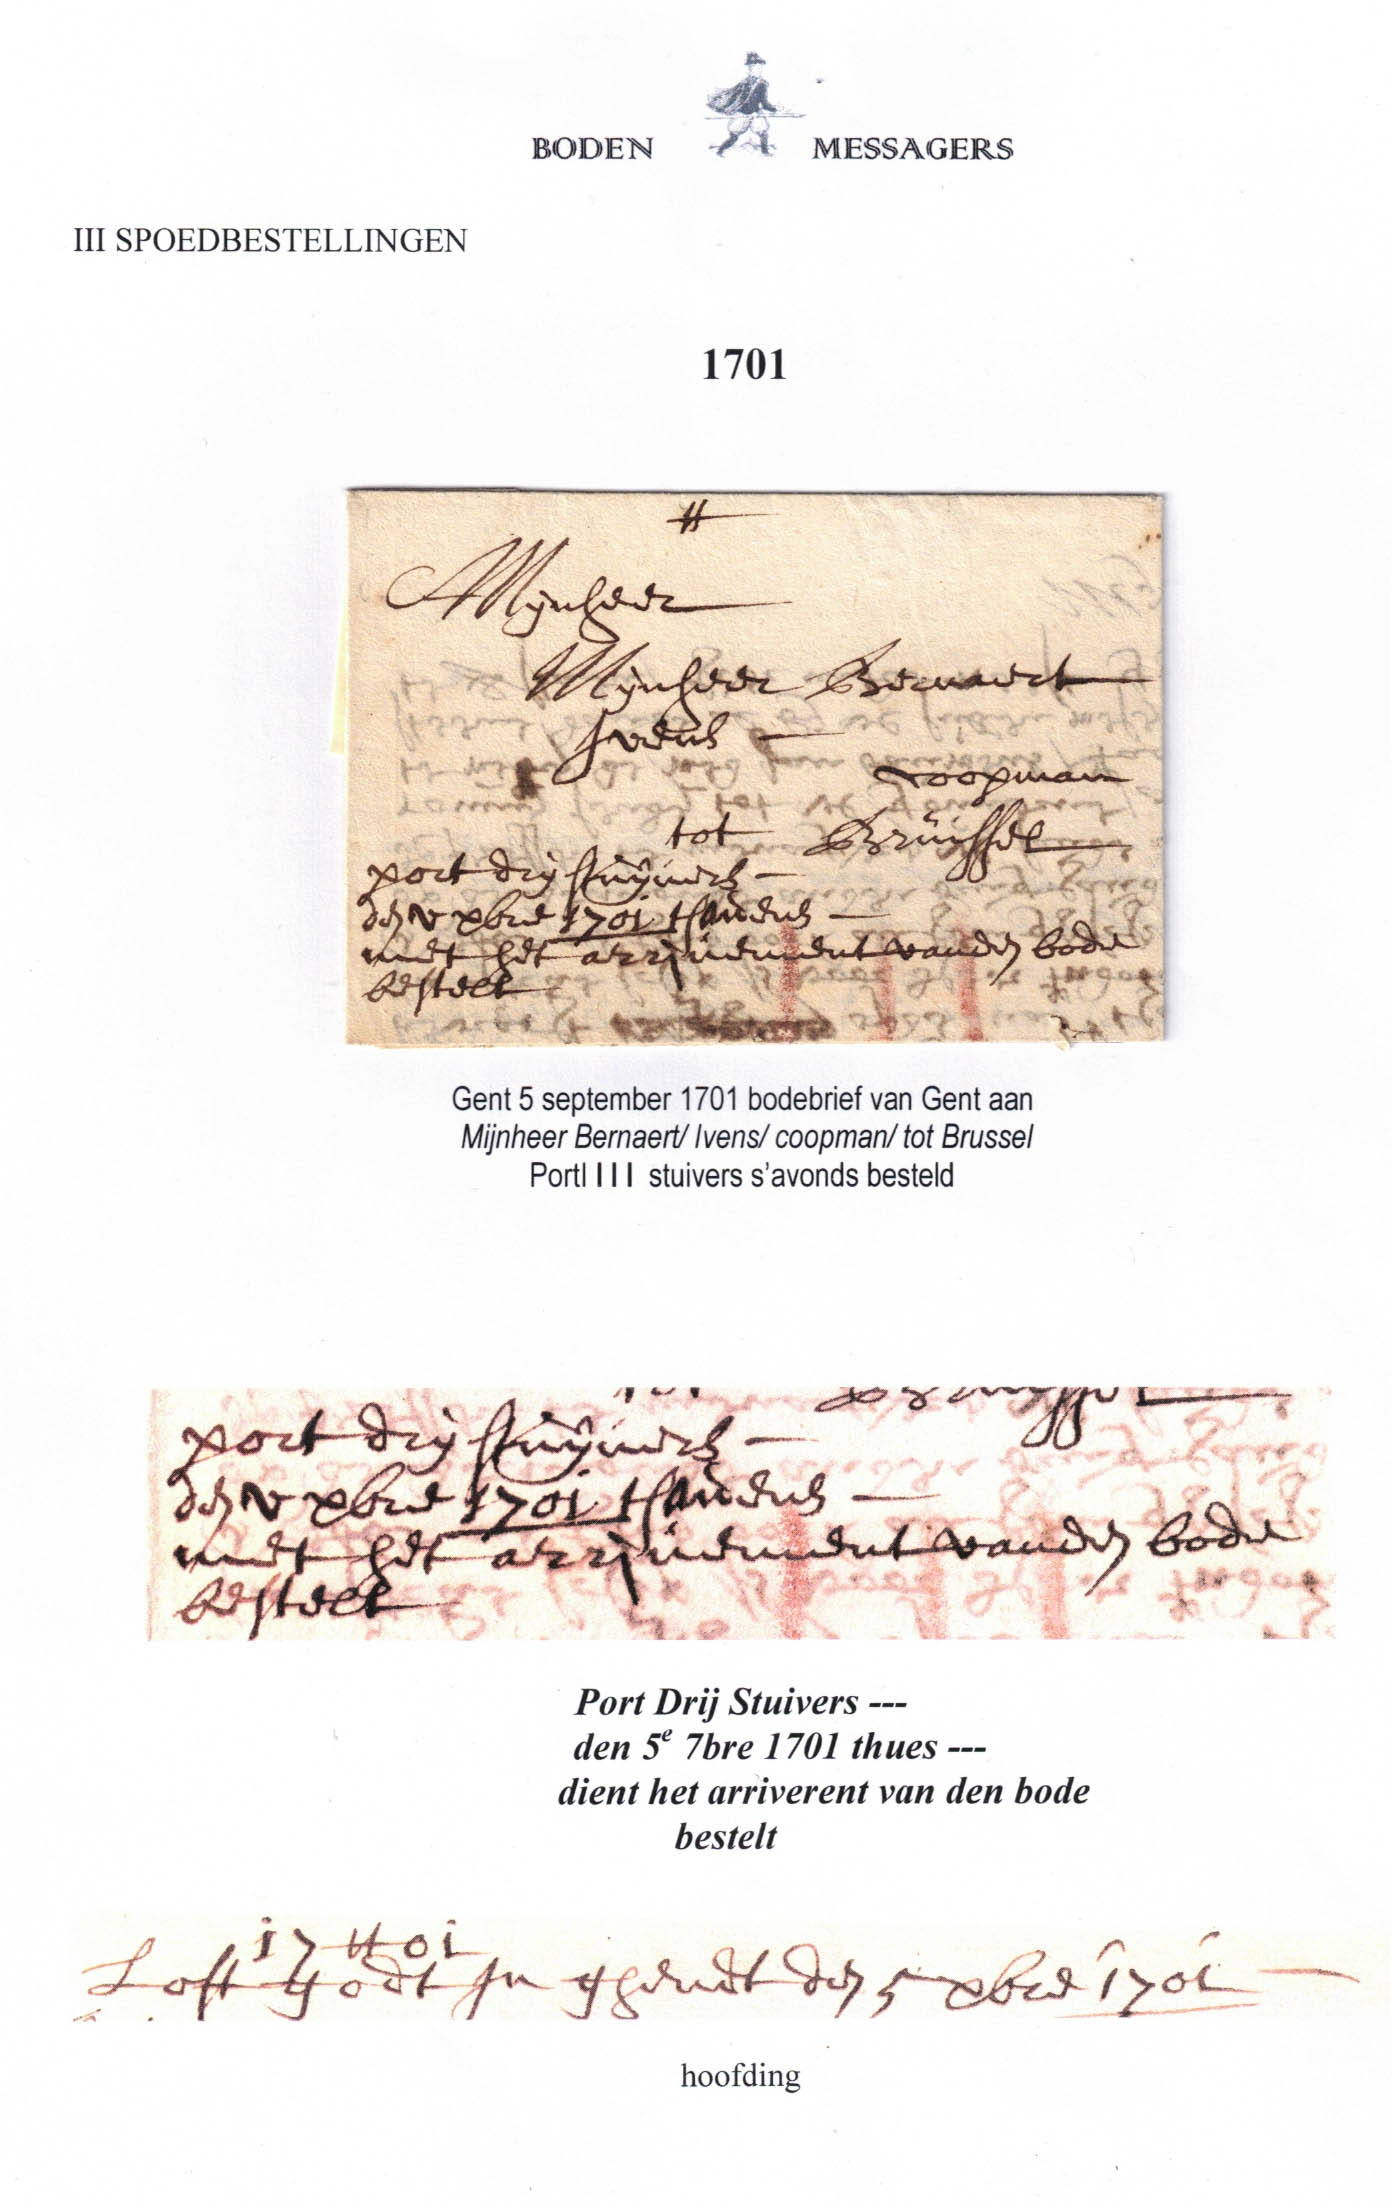 BODEN MESSAGERS
III SPOEDBESTELLINGEN
1701
Mijnheer
Mijnheer Bernaert
Ivens
coopman
tot Bruijssel
port drij stuijvers
den v xbre 1701 tsavens
met het arrivement vanden bode
bestelt
Gent 5 september 1701 bodebrief van Gent aan
Mijnheer Bernaert/ Ivens/ coopman/ tot Brussel
Portl I I I stuivers s’avonds besteld
port drij stuijvers
den v xbre 1701 tsavens
met het arrivement vanden bode
bestelt
Port Drij Stuivers ---
den 5e 7bre 1701 thues ---
dient het arriverent van den bode
bestelt
1701
Loft Godt In ghendt den 5 xbre 1701
hoofding